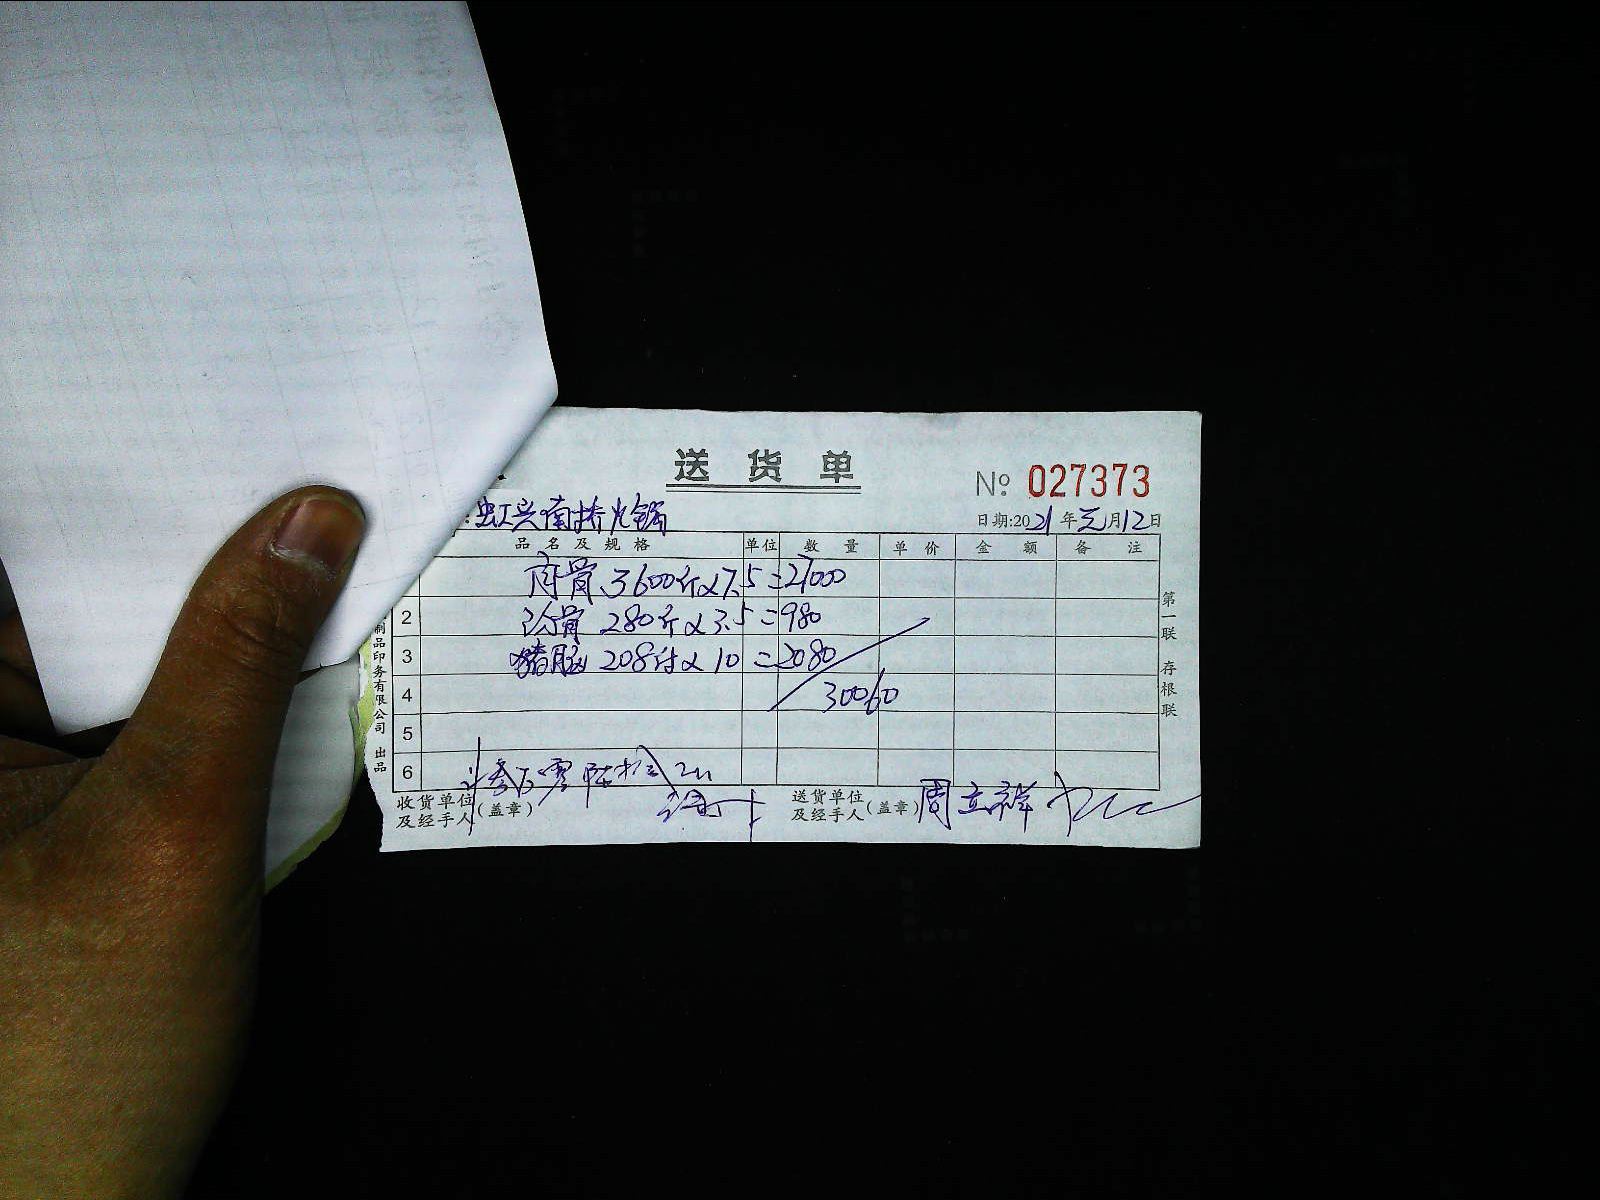 送货单
№ 027373
虹兴南桥火锅
日期:2021年元月12日
品名及规格 单位 数量 单价 金额 备注
骨 3600斤×7.5=27000
2 骨 280斤×3.5=980
3 猪脑 208付×10=2080
4 30060
5
6
收货单位及经手人(盖章)
送货单位及经手人(盖章) 周立祥
第一联 存根联
制品印务有限公司 出品